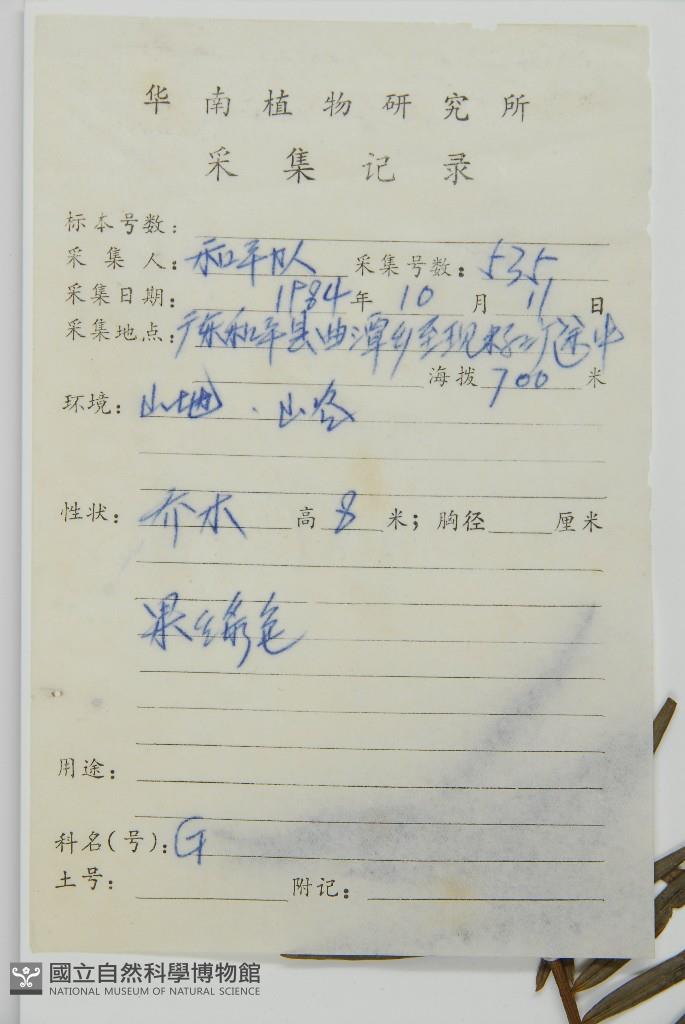 华南植物研究所
采集记录
标本号数：
采集人：和平队 采集号数：535
采集日期：1984年10月11日
采集地点：广东和平县曲潭乡至现 途中
海拨700米
环境：山地．山谷
性状：乔木 高8米；胸径 厘米
果绿色
用途：
科名(号)：G
土号： 附记：
國立自然科學博物館
NATIONAL MUSEUM OF NATURAL SCIENCE